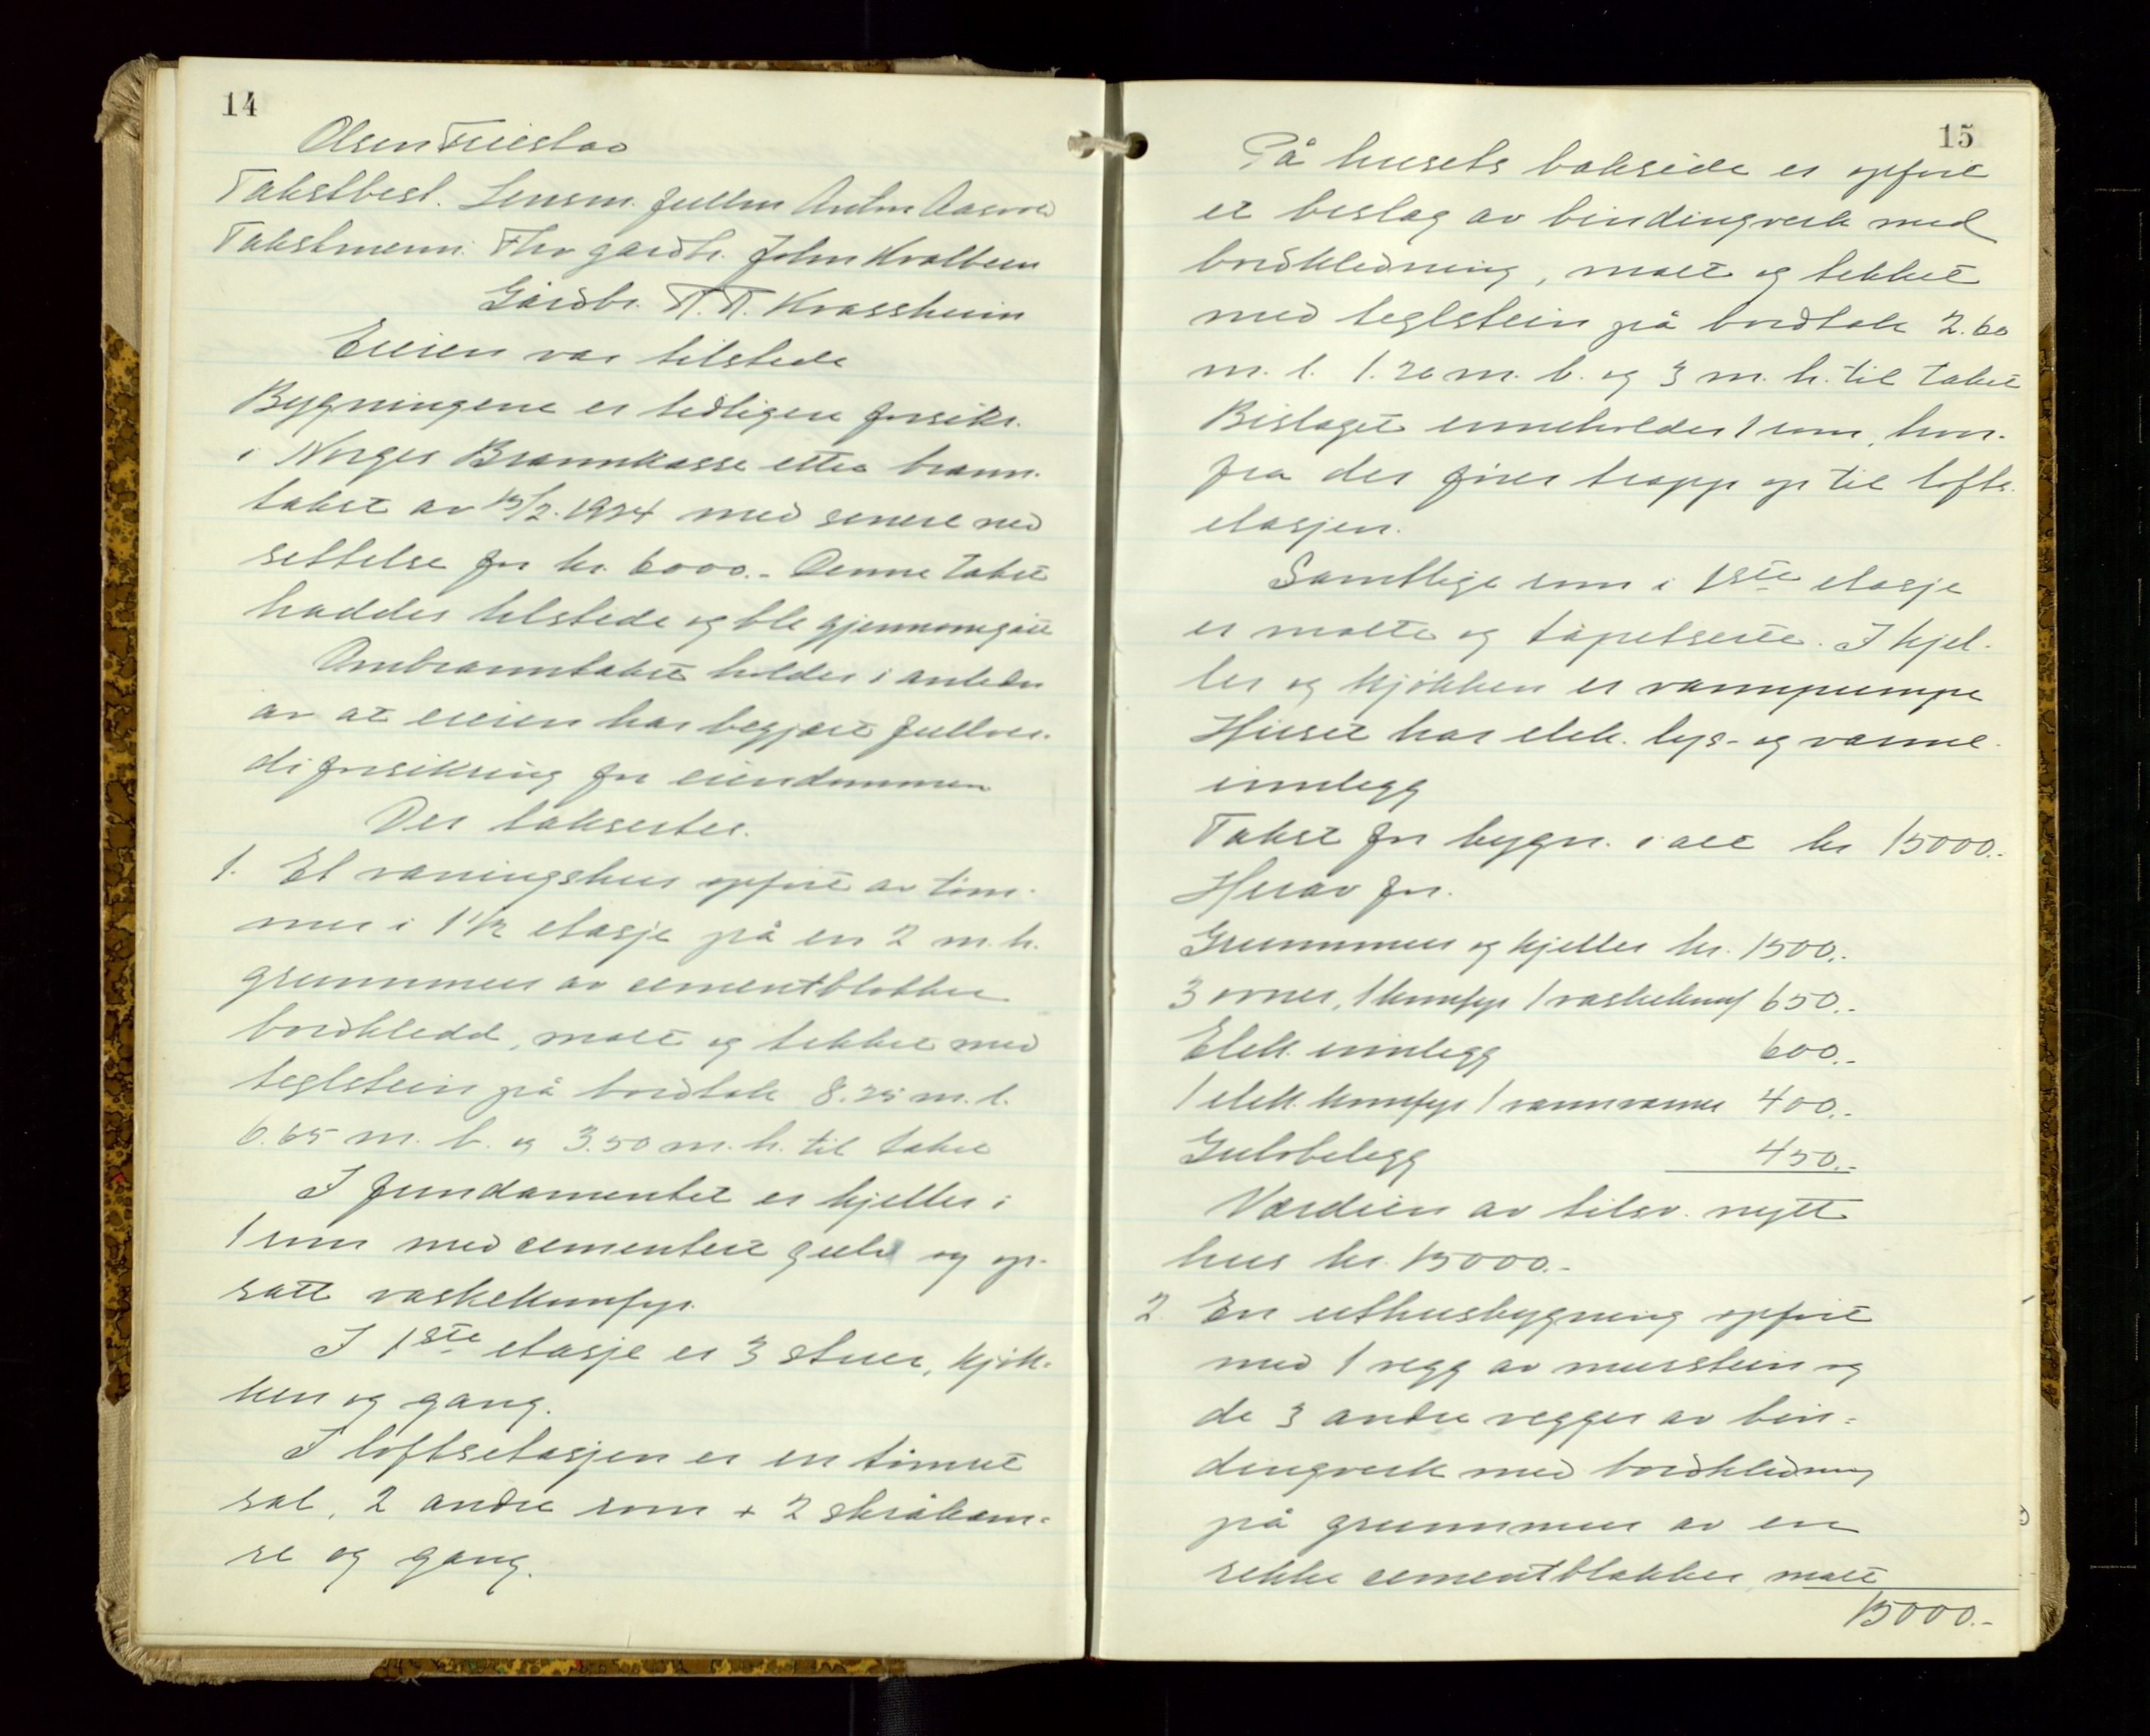 14
Olsen Friestad
Takstbest. Lensm. fullm Anton Aasvold
Takstmenn: Fhv gardbr. John Kvalbein
Gårdbr. T. T. Krossheim
Eieren var tilstede
Bygningene er tidligere forsikr.
i Norges Brannkasse etter brann-
takst av 15/2. 1924 med senere ned
settelse for kr. 6000.- Denne takst
haddes tilstede og ble gjennomgått
Ombranntakst holdes i anledn
av at eieren har begjært fullver-
di forsikring for eiendommen
Der taksertes.
1. Et våningshus opført av tøm-
mer i 1 1/2 etasje på en 2 m. h.
grunnmur av cementblokker
bordkledd, malt og tekket med
teglstein på bordtak 8.25 m. l.
6.65 m. b. og 3.50 m. h. til taket
I fundamentet er kjeller i
1 rum med cementert gulv og op-
satt vaskekomfyr.
I 1ste etasje er 3 stuer, kjøk-
ken og gang.
I loftsetasjen er en tømret
sal, 2 andre rom + 2 skråkam-
re og gang.
15
På husets bakside er opført
et beslag av bindingverk med
bordkledning, malt og tekket
med teglstein på bordtak 2.60
m. l. 1.20 m. b. og 3 m. h. til taket
Bislaget inneholder 1 rom, hvor-
fra der fører trapp op til lofts-
etasjen.
Samtlige rom i 1ste etasje
er malte og tapetserte. I kjel-
ler og kjøkken er vannpumpe
Huset har elek. lys- og varme-
innlegg
Takst for bygn. i alt kr 15000.-
Herav for.
Grunnmur og kjeller kr. 1500.-
3 ovner, 1 komfyr 1 vaskekomf 650.-
Elek. innlegg 600.-
1 elek. komfyr 1 vannvarmer 400.-
Gulvbelegg 450.-
Værdien av tilsv. nytt
hus kr. 15000.-
2. En uthusbygning opført
med 1 vegg av murstein og
de 3 andre vegger av bin-
dingverk med bordkledning
på grunnmur av en
rekke cementblokker, malt
15000.-